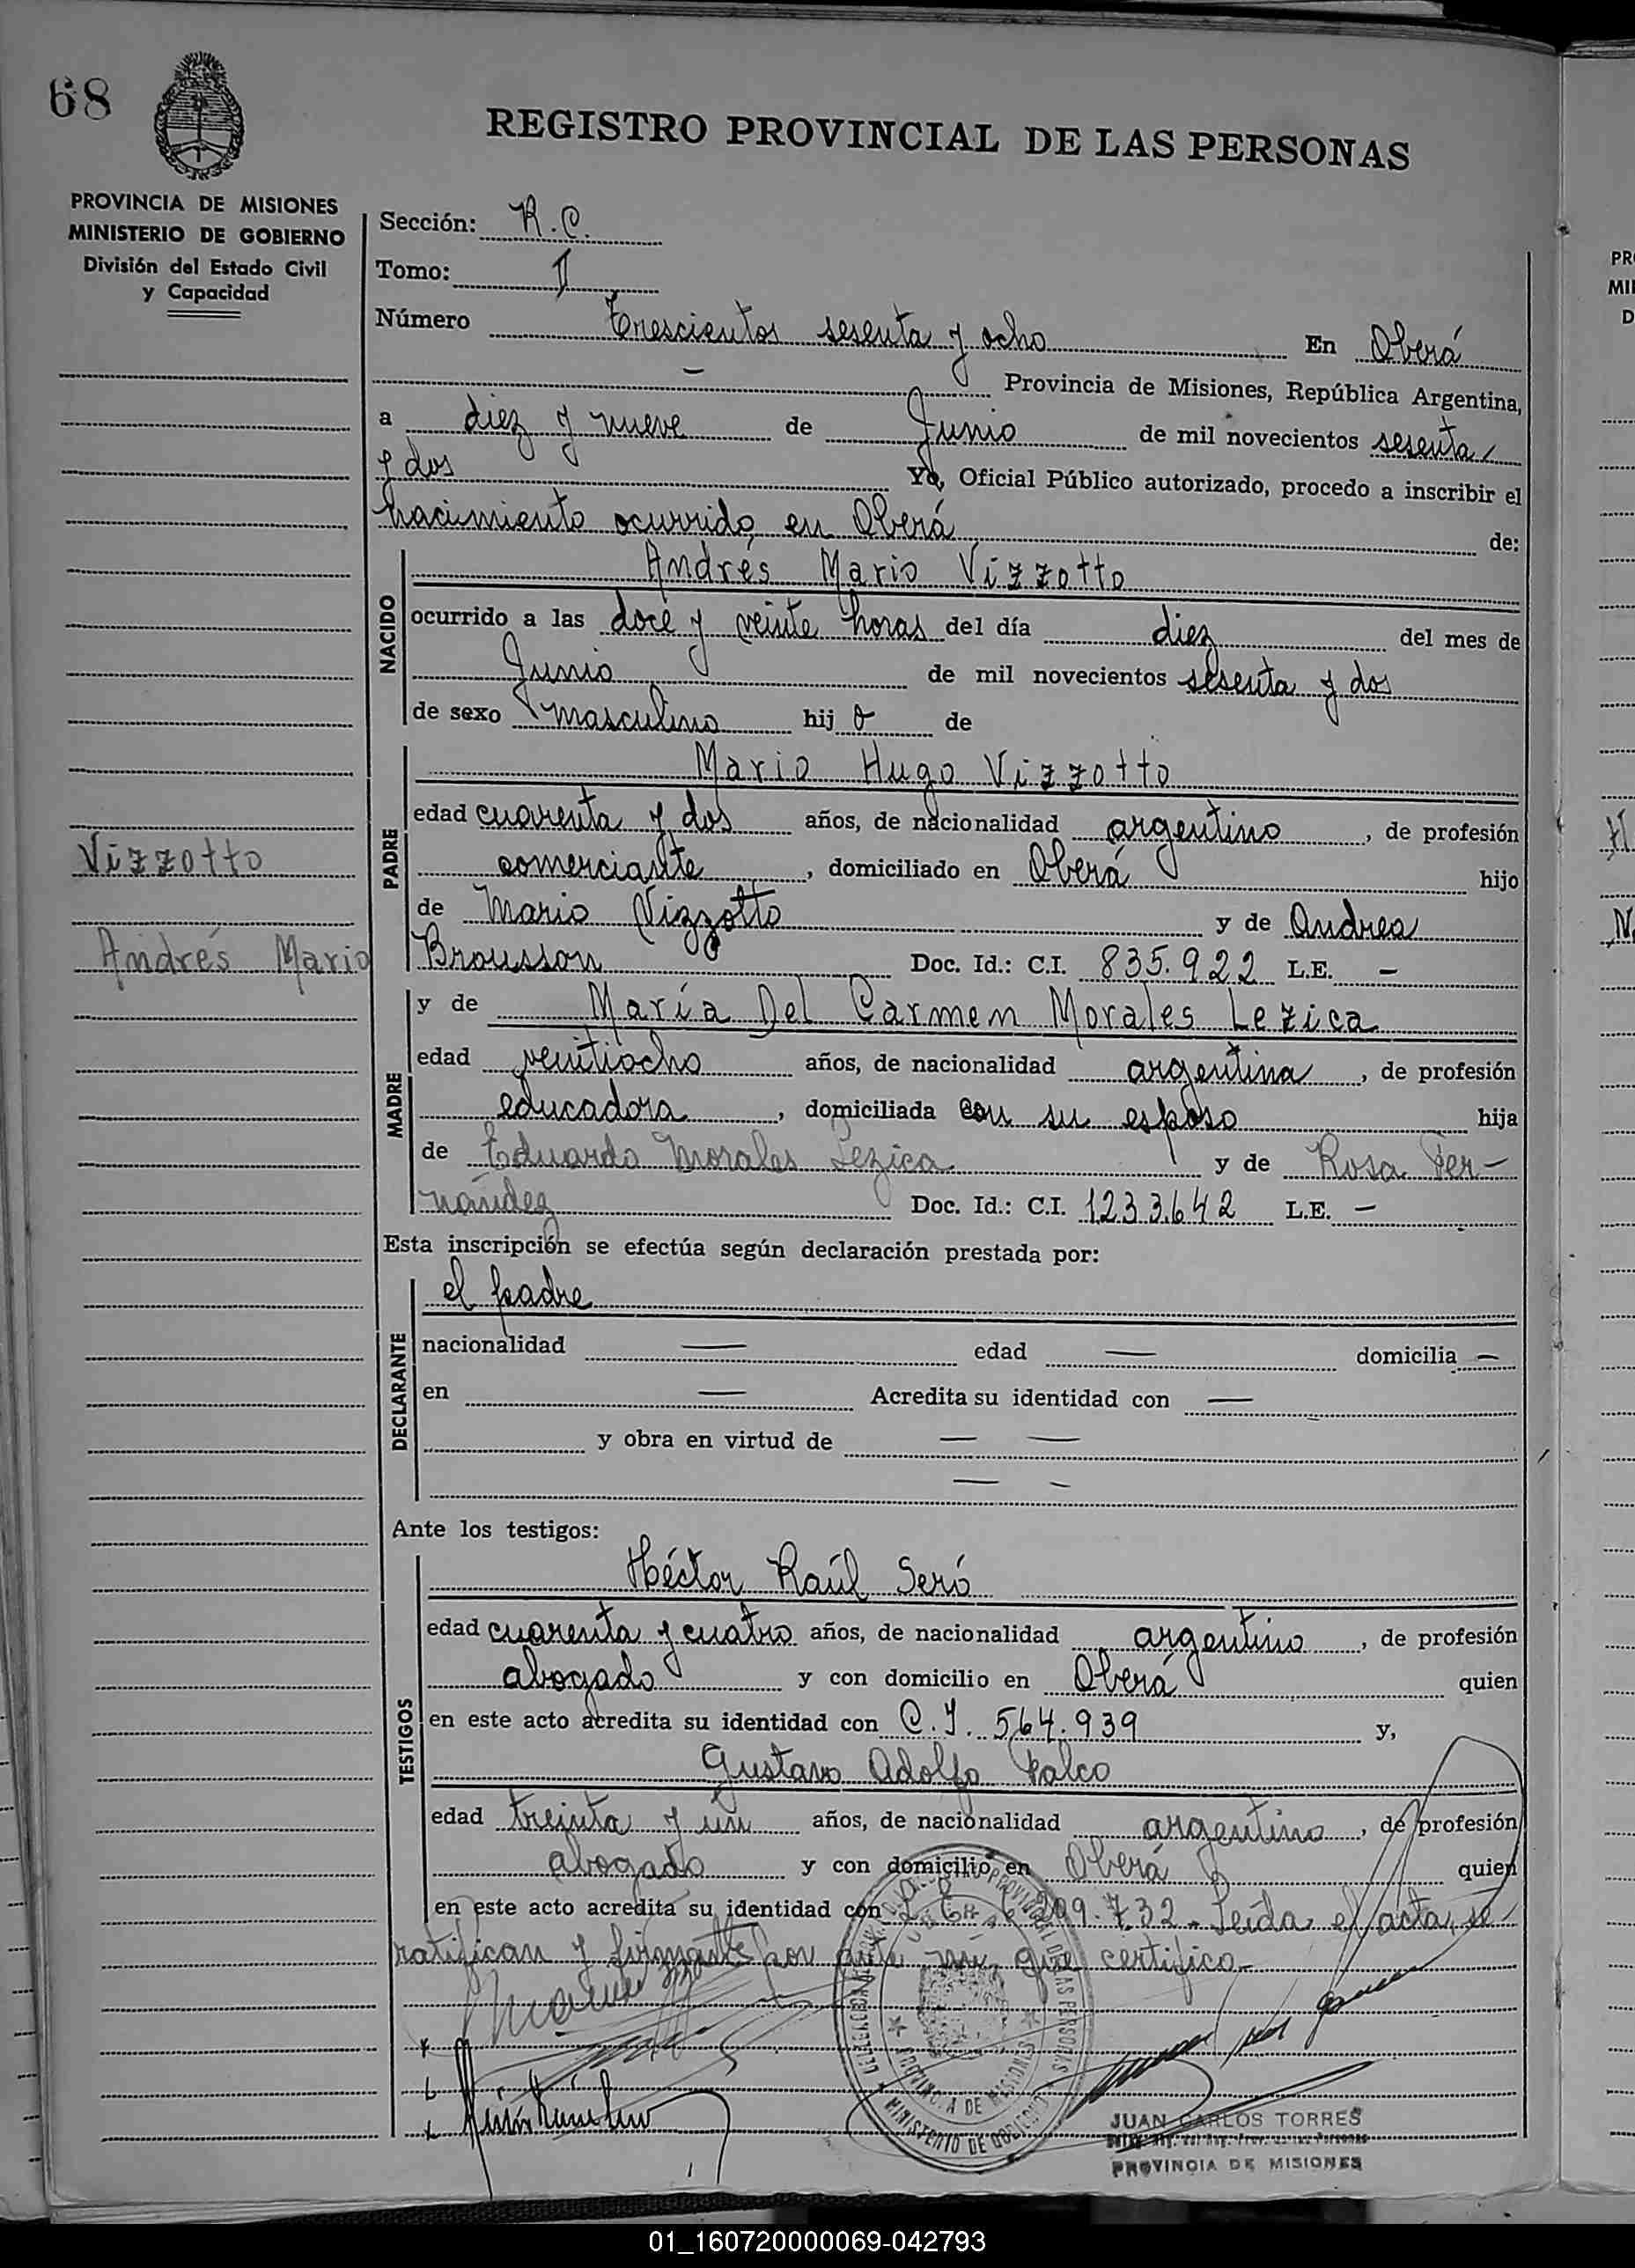 68
REGISTRO PROVINCIAL DE LAS PERSONAS
PROVINCIA DE MISIONES
MINISTERIO DE GOBIERNO
División del Estado Civil
y Capacidad
Sección: R.C.
Tomo: I
Número Trescientos sesenta y ocho En Oberá
— Provincia de Misiones, República Argentina,
a diez y nueve de Junio de mil novecientos sesenta
y dos Yo, Oficial Público autorizado, procedo a inscribir el
nacimiento ocurrido en Oberá de:
NACIDO
Andrés Mario Vizzotto
ocurrido a las doce y veinte horas del día diez del mes de
Junio de mil novecientos sesenta y dos
de sexo masculino hijo de
PADRE
Mario Hugo Vizzotto
edad cuarenta y dos años, de nacionalidad argentino, de profesión
comerciante, domiciliado en Oberá hijo
de Mario Vizzotto y de Andrea
Brousson Doc. Id.: C.I. 835.922 L.E. —
Vizzotto
Andrés Mario
MADRE
y de María Del Carmen Morales Lezica
edad veintiocho años, de nacionalidad argentina, de profesión
educadora, domiciliada con su esposo hija
de Eduardo Morales Lezica y de Rosa Fer-
nández Doc. Id.: C.I. 1.233.642 L.E. —
Esta inscripción se efectúa según declaración prestada por:
DECLARANTE
el padre
nacionalidad — edad — domicilia —
en — Acredita su identidad con —
y obra en virtud de — —
— —
Ante los testigos:
TESTIGOS
Héctor Raúl Seró
edad cuarenta y cuatro años, de nacionalidad argentino, de profesión
abogado y con domicilio en Oberá quien
en este acto acredita su identidad con C.I. 564.939 y,
Gustavo Adolfo Palco
edad treinta y un años, de nacionalidad argentino, de profesión
abogado y con domicilio en Oberá quien
en este acto acredita su identidad con 209.732. Leída el acta, se
ratifican y firmante por ante mí, que certifico.-
PROVINCIA DE MISIONES
MINISTERIO DE GOBIERNO
JUAN CARLOS TORRES
PROVINCIA DE MISIONES
01_160720000069-042793